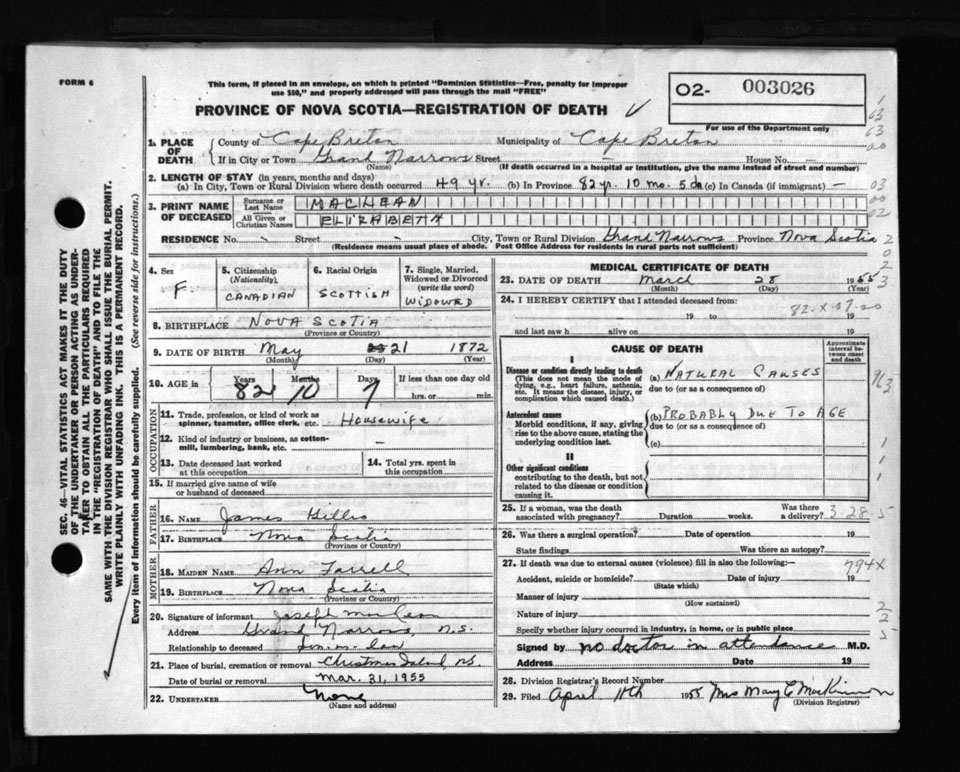 FORM 6
This form, if placed in an envelope, on which is printed "Dominion Statistics—Free, penalty for improper
use $50," and properly addressed will pass through the mail "FREE"
PROVINCE OF NOVA SCOTIA—REGISTRATION OF DEATH
O2- 003026
For use of the Department only
1. PLACE OF DEATH
County of Cape Breton Municipality of Cape Breton
If in City or Town Grand Narrows Street — House No. —
(Name) (If death occurred in a hospital or institution, give the name instead of street and number)
2. LENGTH OF STAY (in years, months and days)
(a) In City, Town or Rural Division where death occurred 49 yr. (b) In Province 82 yr. 10 mo. 5 da (c) In Canada (if immigrant) —
3. PRINT NAME OF DECEASED
Surname or Last Name MACLEAN
All Given or Christian Names ELIZABETH
RESIDENCE No. - Street - City, Town or Rural Division Grand Narrows Province Nova Scotia
(Residence means usual place of abode. Post Office Address for residents in rural parts not sufficient)
4. Sex F
5. Citizenship (Nationality) CANADIAN
6. Racial Origin SCOTTISH
7. Single, Married, Widowed or Divorced (write the word) WIDOWED
8. BIRTHPLACE NOVA SCOTIA
(Province or Country)
9. DATE OF BIRTH May 21 1872
(Month) (Day) (Year)
10. AGE in Years 82 Months 10 Days 7 If less than one day old
hrs. or min.
OCCUPATION
11. Trade, profession or kind of work as
spinner, teamster, office clerk, etc. Housewife
12. Kind of industry or business, as cotton-
mill, lumbering, bank, etc. —
13. Date deceased last worked
at this occupation
14. Total yrs. spent in
this occupation
15. If married give name of wife
or husband of deceased
FATHER
16. NAME James Gillis
17. BIRTHPLACE Nova Scotia
(Province or Country)
MOTHER
18. MAIDEN NAME Ann Farrell
19. BIRTHPLACE Nova Scotia
(Province or Country)
20. Signature of informant Joseph MacLean
Address Grand Narrows, N.S.
Relationship to deceased Son-in-law
21. Place of burial, cremation or removal Christmas Island, NS.
Date of burial or removal Mar. 31, 1955
22. UNDERTAKER None
(Name and address)
MEDICAL CERTIFICATE OF DEATH
23. DATE OF DEATH March 28 1955
(Month) (Day) (Year)
24. I HEREBY CERTIFY that I attended deceased from:
19 to 19
and last saw h alive on 19
CAUSE OF DEATH
Approximate interval between onset and death
I
Disease or condition directly leading to death
(This does not mean the mode of
dying, e.g., heart failure, asthenia,
etc. It means the disease, injury, or
complication which caused death.)
(a) NATURAL CAUSES
due to (or as a consequence of)
Antecedent causes
Morbid conditions, if any, giving
rise to the above cause, stating the
underlying condition last.
(b) PROBABLY DUE TO AGE
due to (or as a consequence of)
(c)
II
Other significant conditions
contributing to the death, but not
related to the disease or condition
causing it.
25. If a woman, was the death
associated with pregnancy? Duration weeks. Was there
a delivery? 3-28-5
26. Was there a surgical operation? Date of operation 19
State findings Was there an autopsy?
27. If death was due to external causes (violence) fill in also the following:— 794X
Accident, suicide or homicide? Date of injury 19
(State which)
Manner of injury
(How sustained)
Nature of injury
Specify whether injury occurred in industry, in home, or in public place
Signed by no doctor in attendance M.D.
Address Date 19
28. Division Registrar's Record Number
29. Filed April 11th 1955 Mrs Mary C MacKinnon
(Division Registrar)
SEC. 46—VITAL STATISTICS ACT MAKES IT THE DUTY
OF THE UNDERTAKER OR PERSON ACTING AS UNDER-
TAKER TO OBTAIN ALL THE PARTICULARS REQUIRED
IN THE "REGISTRATION OF DEATH" AND TO FILE THE
SAME WITH THE DIVISION REGISTRAR WHO SHALL ISSUE THE BURIAL PERMIT.
WRITE PLAINLY WITH UNFADING INK. THIS IS A PERMANENT RECORD.
Every item of information should be carefully supplied. (See reverse side for instructions.)